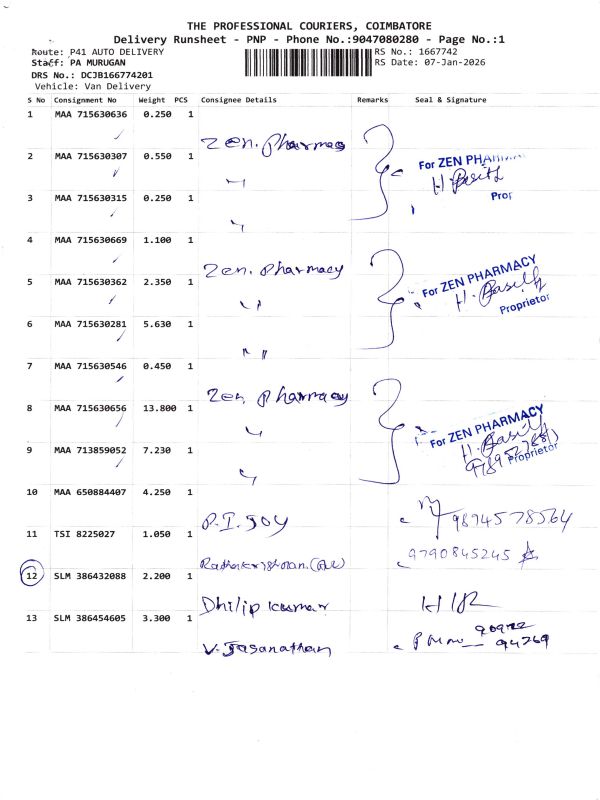 THE PROFESSIONAL COURIERS, COIMBATORE
Delivery Runsheet - PNP - Phone No.:9047080280 - Page No.:1
Route: P41 AUTO DELIVERY RS No.: 1667742
Staff: PA MURUGAN RS Date: 07-Jan-2026
DRS No.: DCJB166774201
Vehicle: Van Delivery
S No Consignment No Weight PCS Consignee Details Remarks Seal & Signature
1 MAA 715630636 0.250 1
Zen. Pharmacy
2 MAA 715630307 0.550 1 For ZEN PHARM
"
Prop
3 MAA 715630315 0.250 1
"
4 MAA 715630669 1.100 1
Zen. Pharmacy
For ZEN PHARMACY
5 MAA 715630362 2.350 1
" Proprietor
6 MAA 715630281 5.630 1
"
7 MAA 715630546 0.450 1
Zen. Pharmacy
8 MAA 715630656 13.800 1
" For ZEN PHARMACY
9 MAA 713859052 7.230 1 Proprietor
"
10 MAA 650884407 4.250 1
P.I. JOY 9874578564
11 TSI 8225027 1.050 1
9790845245
12 SLM 386432088 2.200 1
Dhilip kumar
13 SLM 386454605 3.300 1
V. Jasanathan 94769